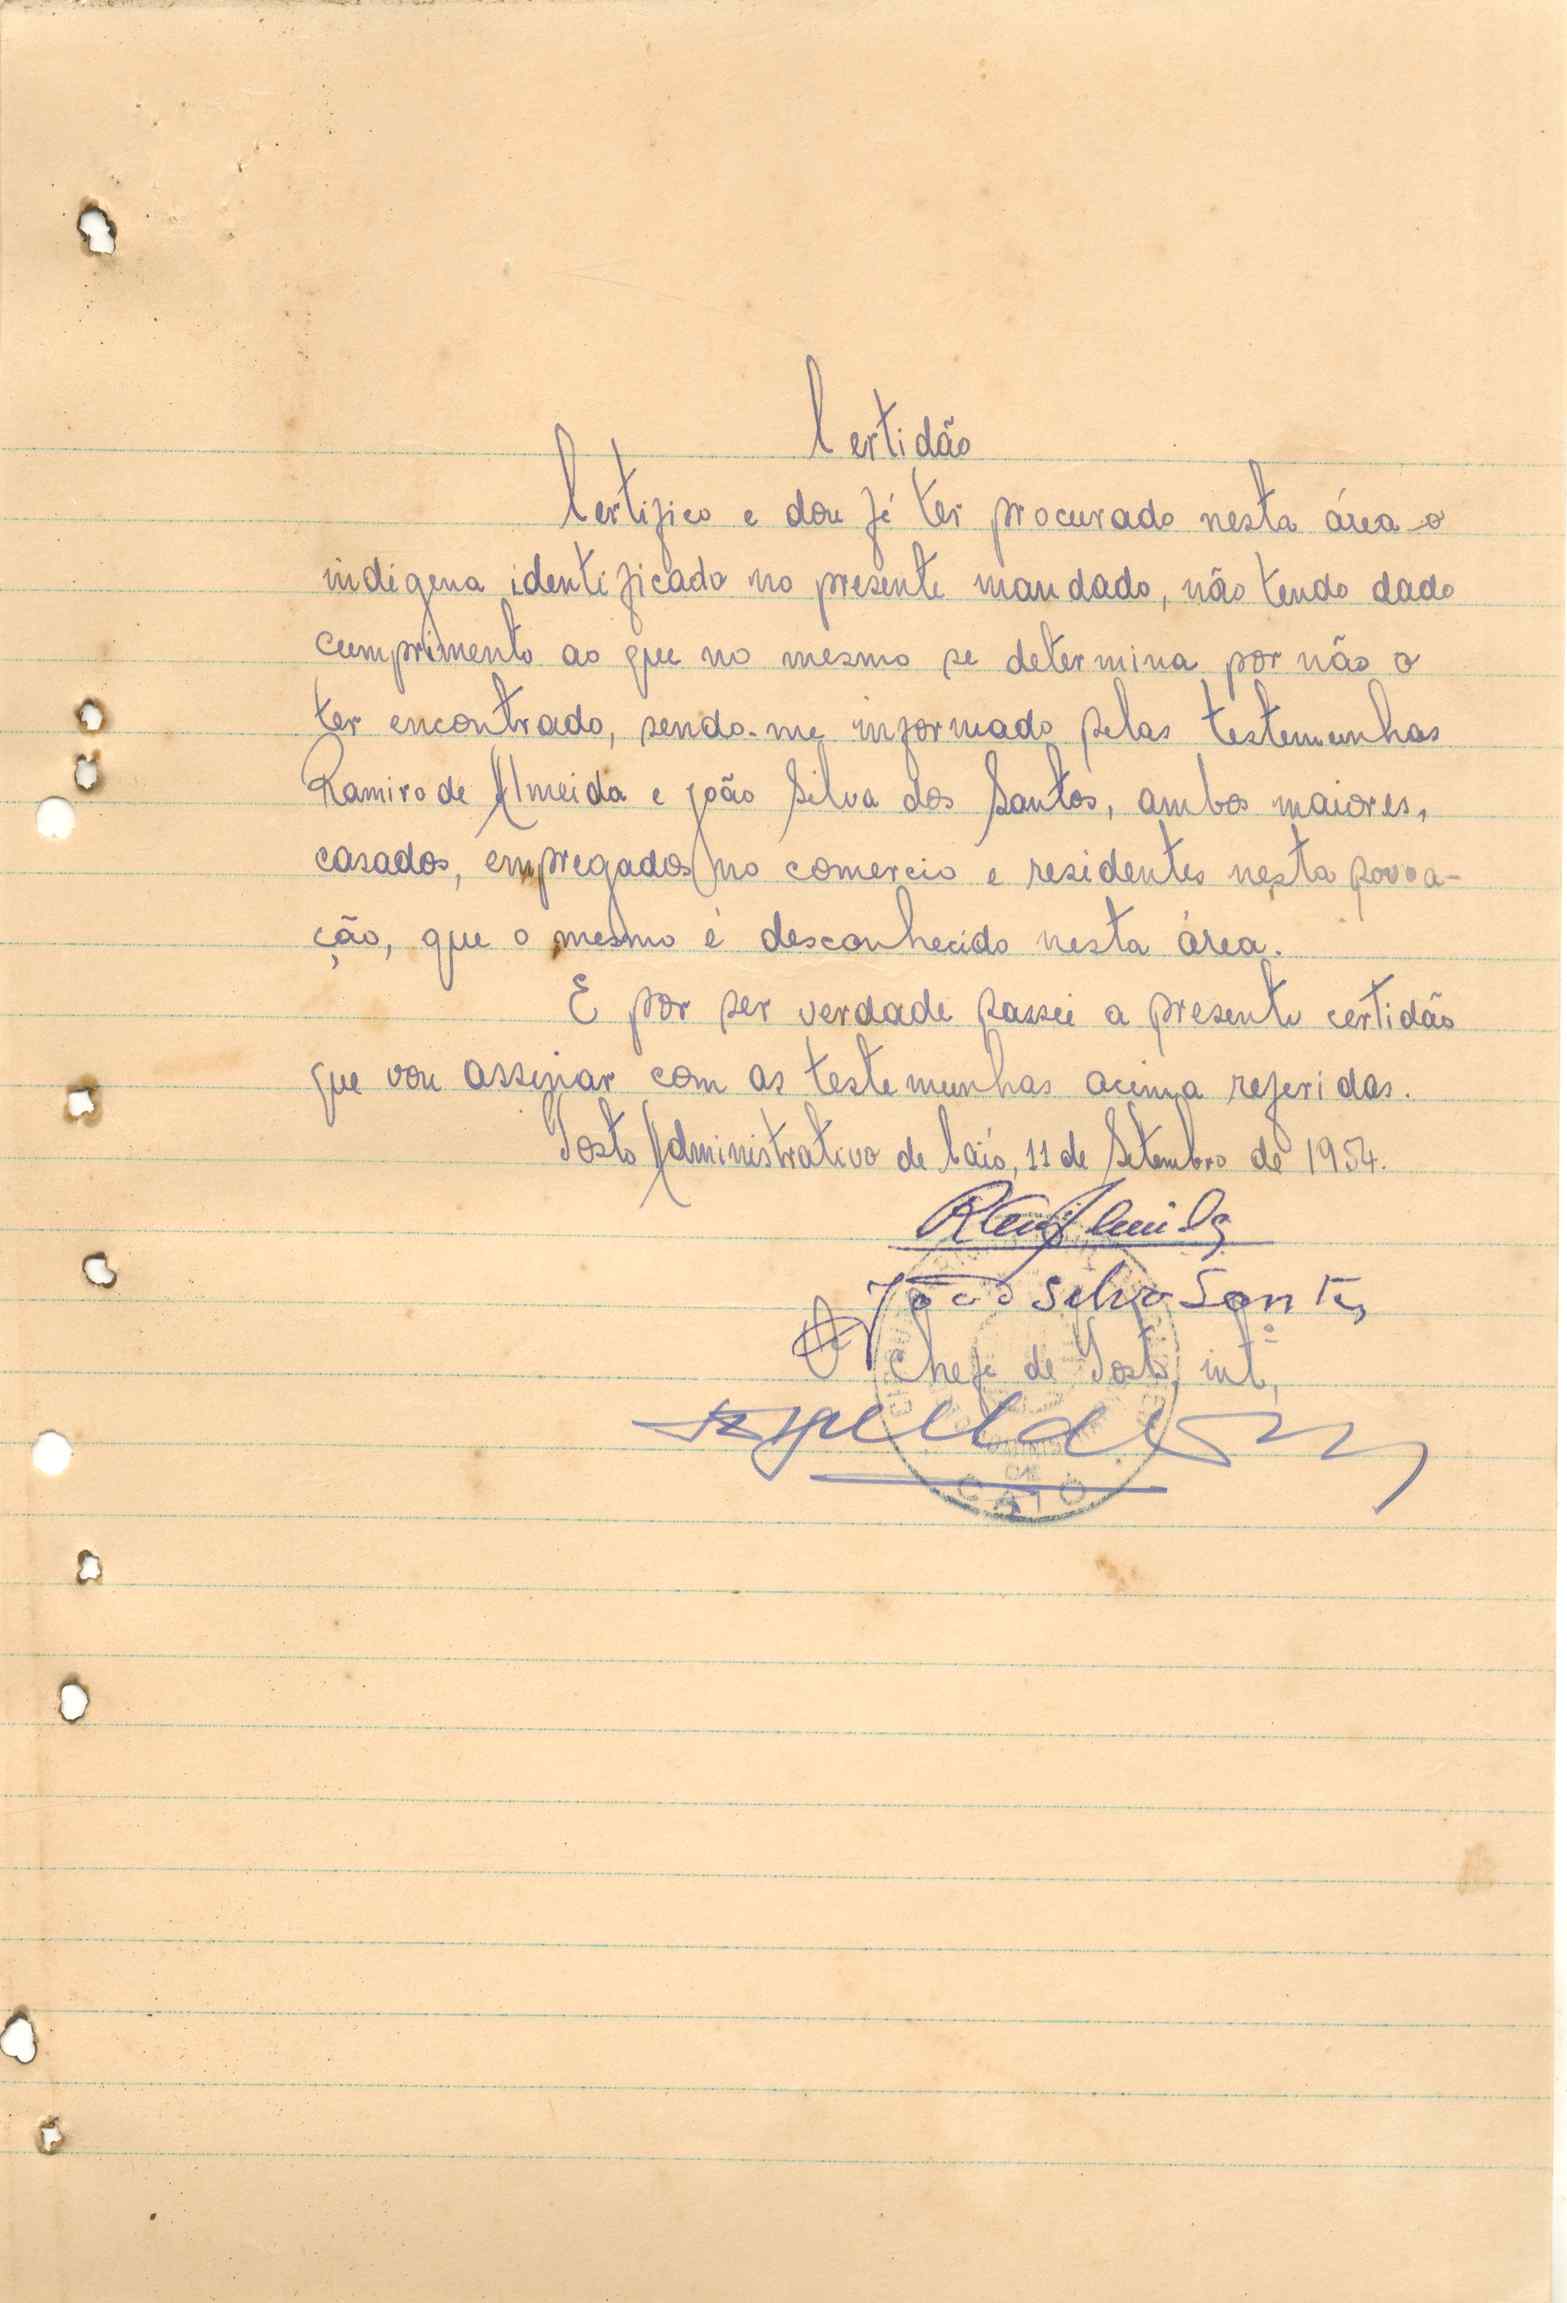 Certidão
Certifico e dou fé ter procurado nesta área o
indigena identificado no presente mandado, não tendo dado
cumprimento ao que no mesmo se determina por não o
ter encontrado, sendo-me informado pelas testemunhas
Ramiro de Almeida e João Silva dos Santos, ambos maiores,
casados, empregados no comercio e residentes nesta povoa-
ção, que o mesmo é desconhecido nesta área.
E por ser verdade passei a presente certidão
que vou assinar com as testemunhas acima referidas.
Posto Administrativo de Caió, 11 de Setembro de 1954.
João Silva Santos
O Chefe de Posto, intº,
CAIÓ